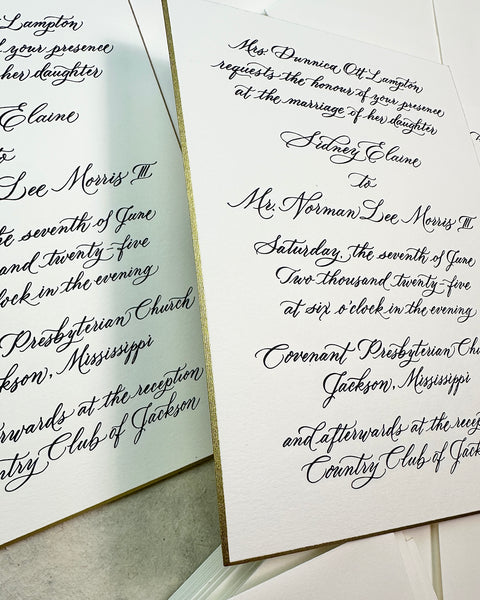 Lampton
f your presence
her daughter
Elaine
to
Lee Morris III
the seventh of June
and twenty-five
clock in the evening
Presbyterian Church
ckson, Mississippi
erwards at the reception
ntry Club of Jackson
Mrs Dunnica Ott Lampton
requests the honour of your presence
at the marriage of her daughter
Sidney Elaine
to
Mr. Norman Lee Morris III
Saturday, the seventh of June
Two thousand twenty-five
at six o'clock in the evening
Covenant Presbyterian Chu
Jackson, Mississippi
and afterwards at the recep
Country Club of Jack